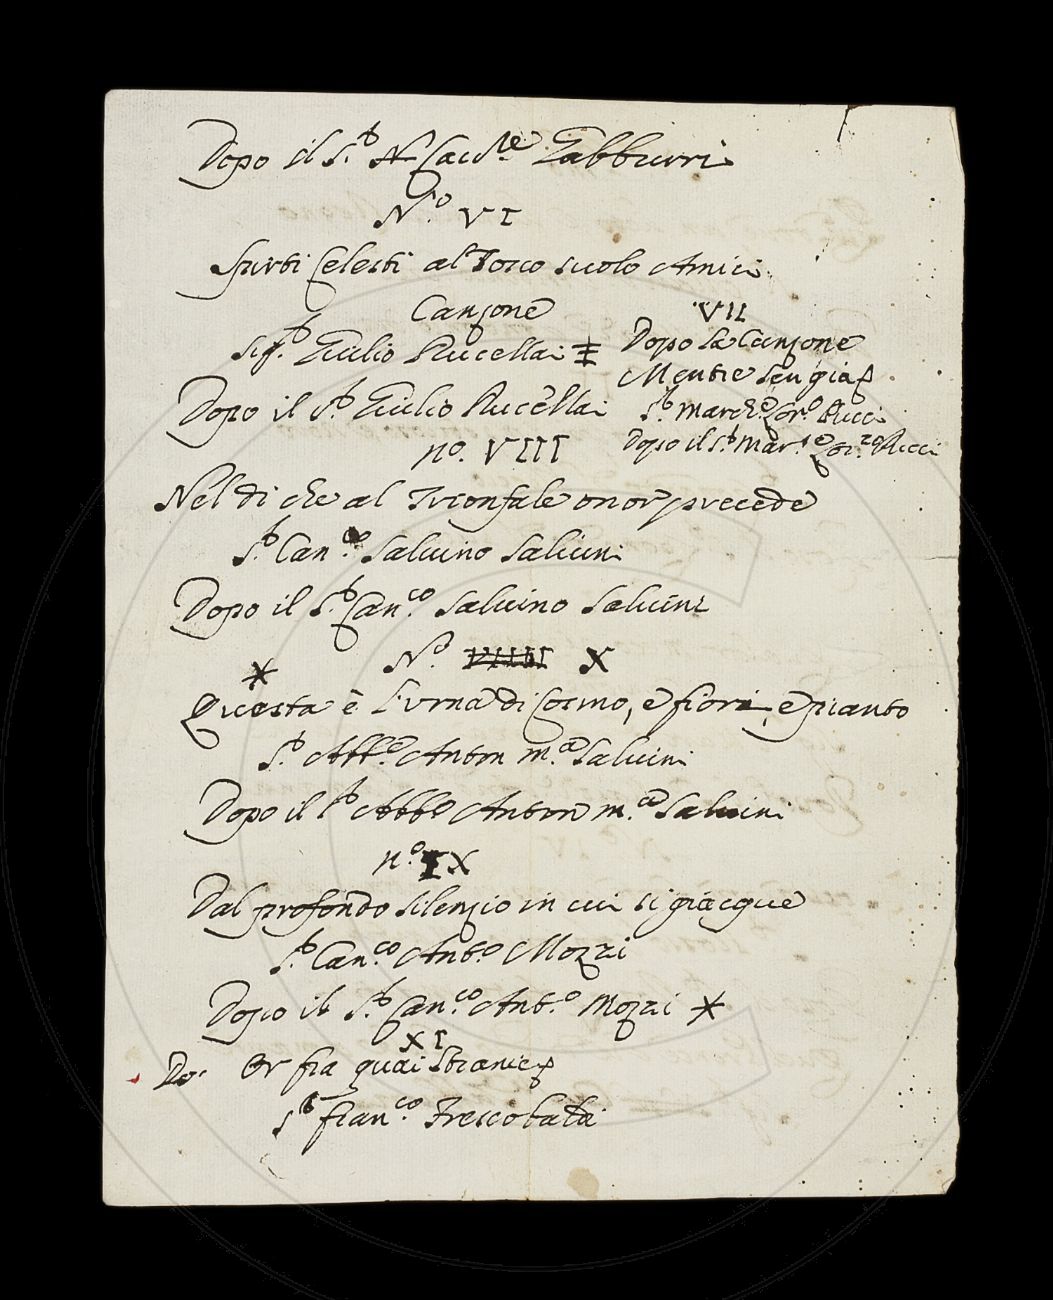 Dopo il S.r N Cav.re Gabburri
N.o VI
Spirti Celesti al Tosco suolo Amici
Canzone
Sig.r Giulio Rucellai ‡
Dopo il S.r Giulio Rucellai
VII
Dopo la Canzone
Mentre sen gia
S.r March.e Lor.o Pucci
Dopo il S.r Mar.se Lor.zo Pucci
no. VIII
Nel dì che al Trionfale onor precede
S.r Can.co Salvino Salvini
Dopo il S.r Can.co Salvino Salvini
N.o X
* Questa è l'urna di Cosmo, e fiori, e pianto
S.r Abb.e Anton m.a Salvini
Dopo il S.r Abb.e Anton m.a Salvini
n.o IX
Dal profondo silenzio in cui si giacque
S.r Can.co Ant.o Mozzi
Dopo il S.r Can.co Ant.o Mozzi *
XI
Do. Or fra quai Stranie
S.r Fran.co Frescobaldi